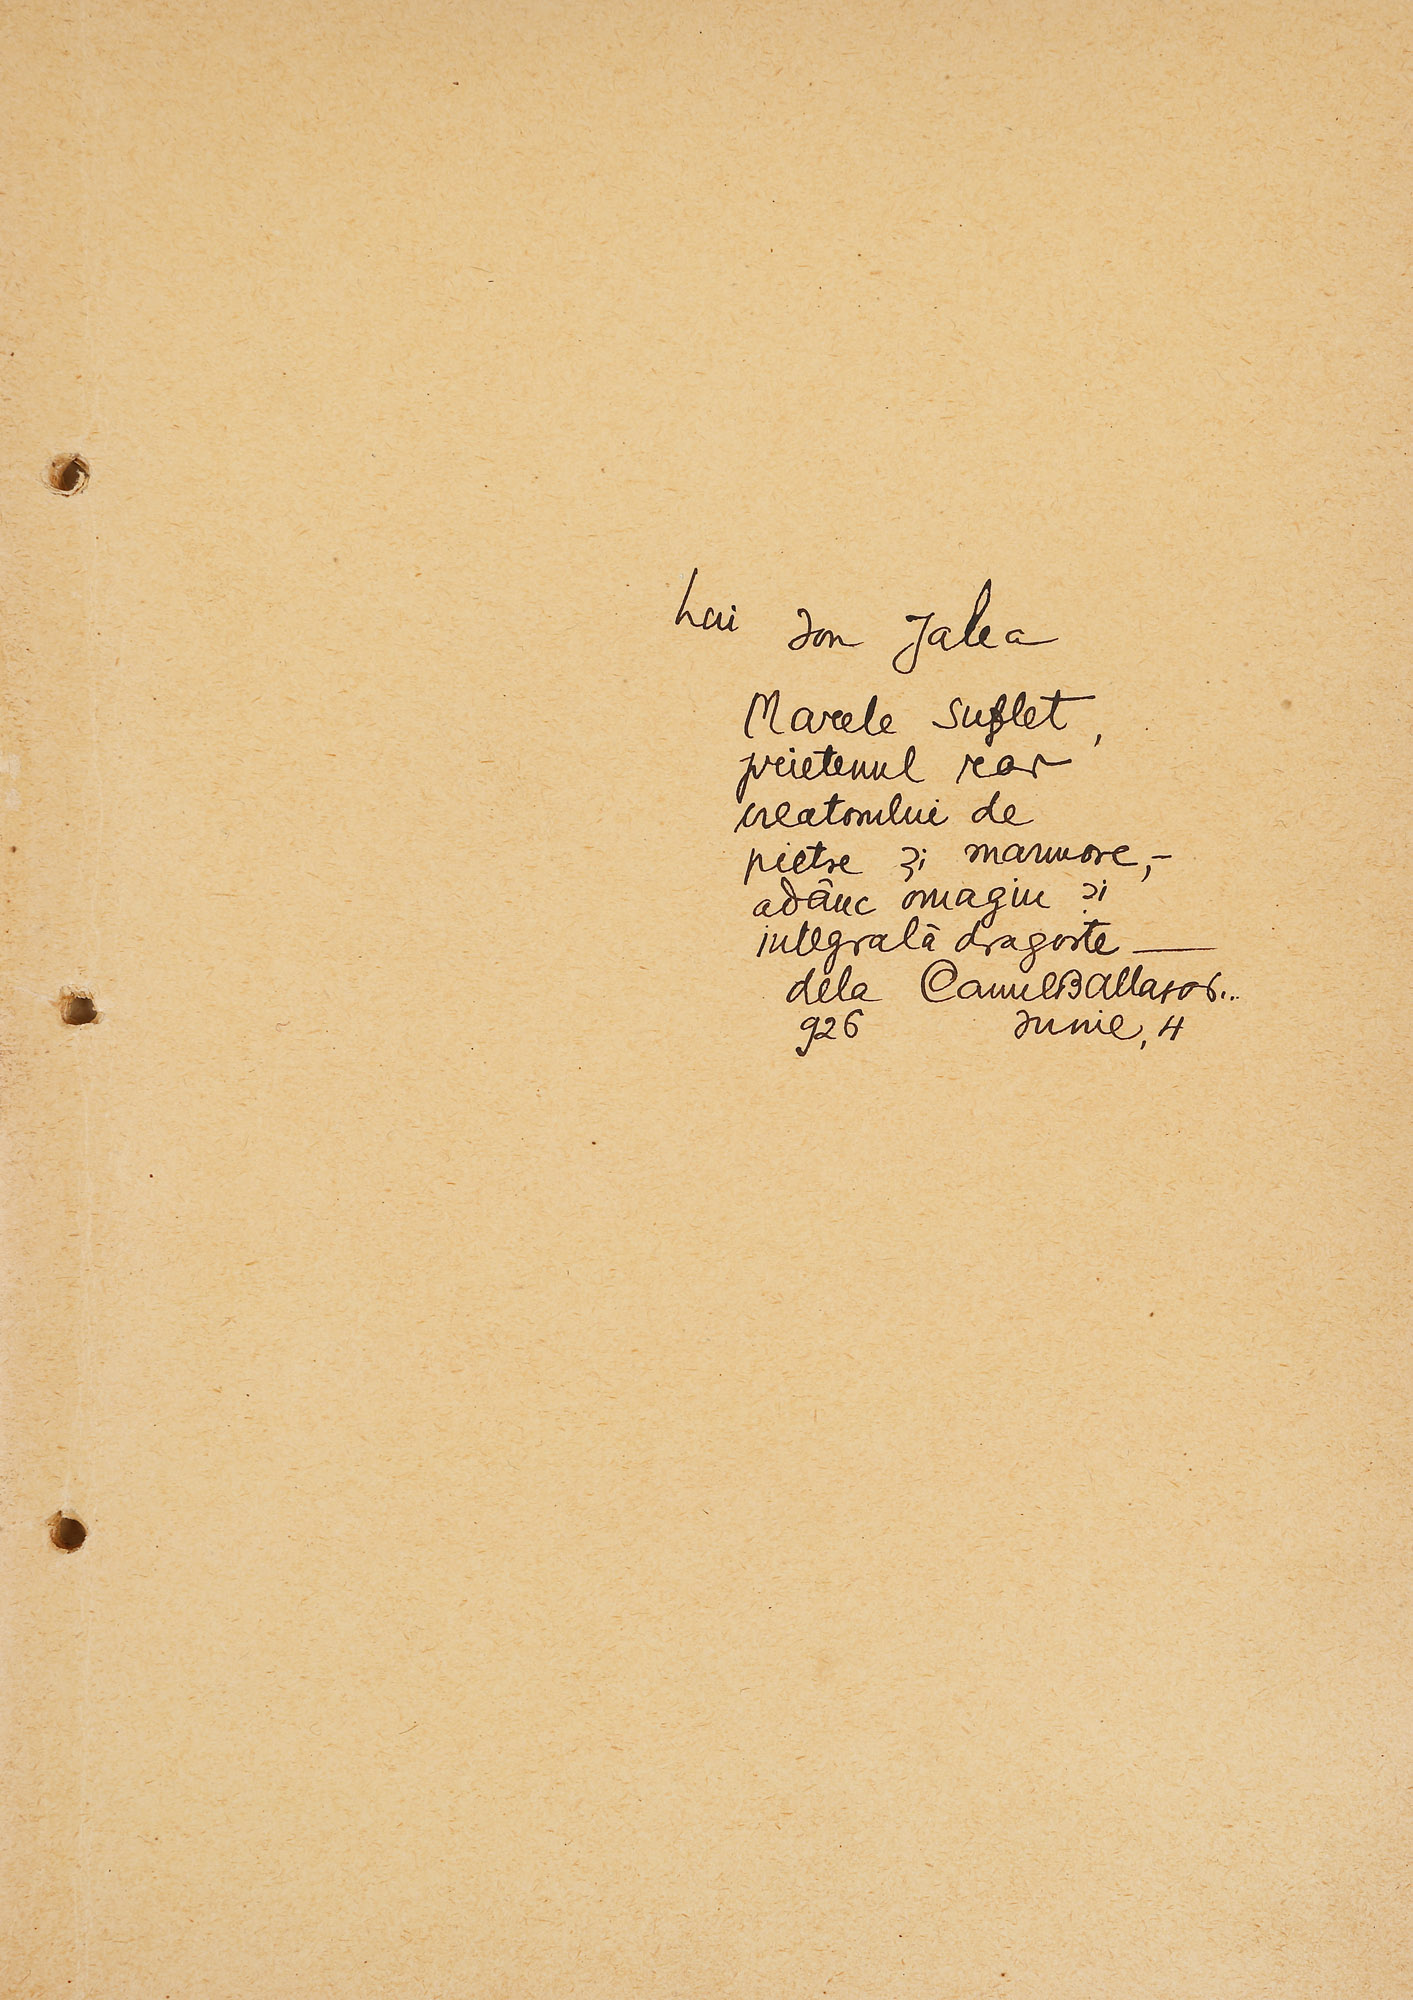 Lui Ion Jalea
Marele suflet,
prietenul rar
creatorului de
pietre și marmore,-
adânc omagiu și
integrală dragoste —
dela Camil Baltasar..
926 Iunie, 4